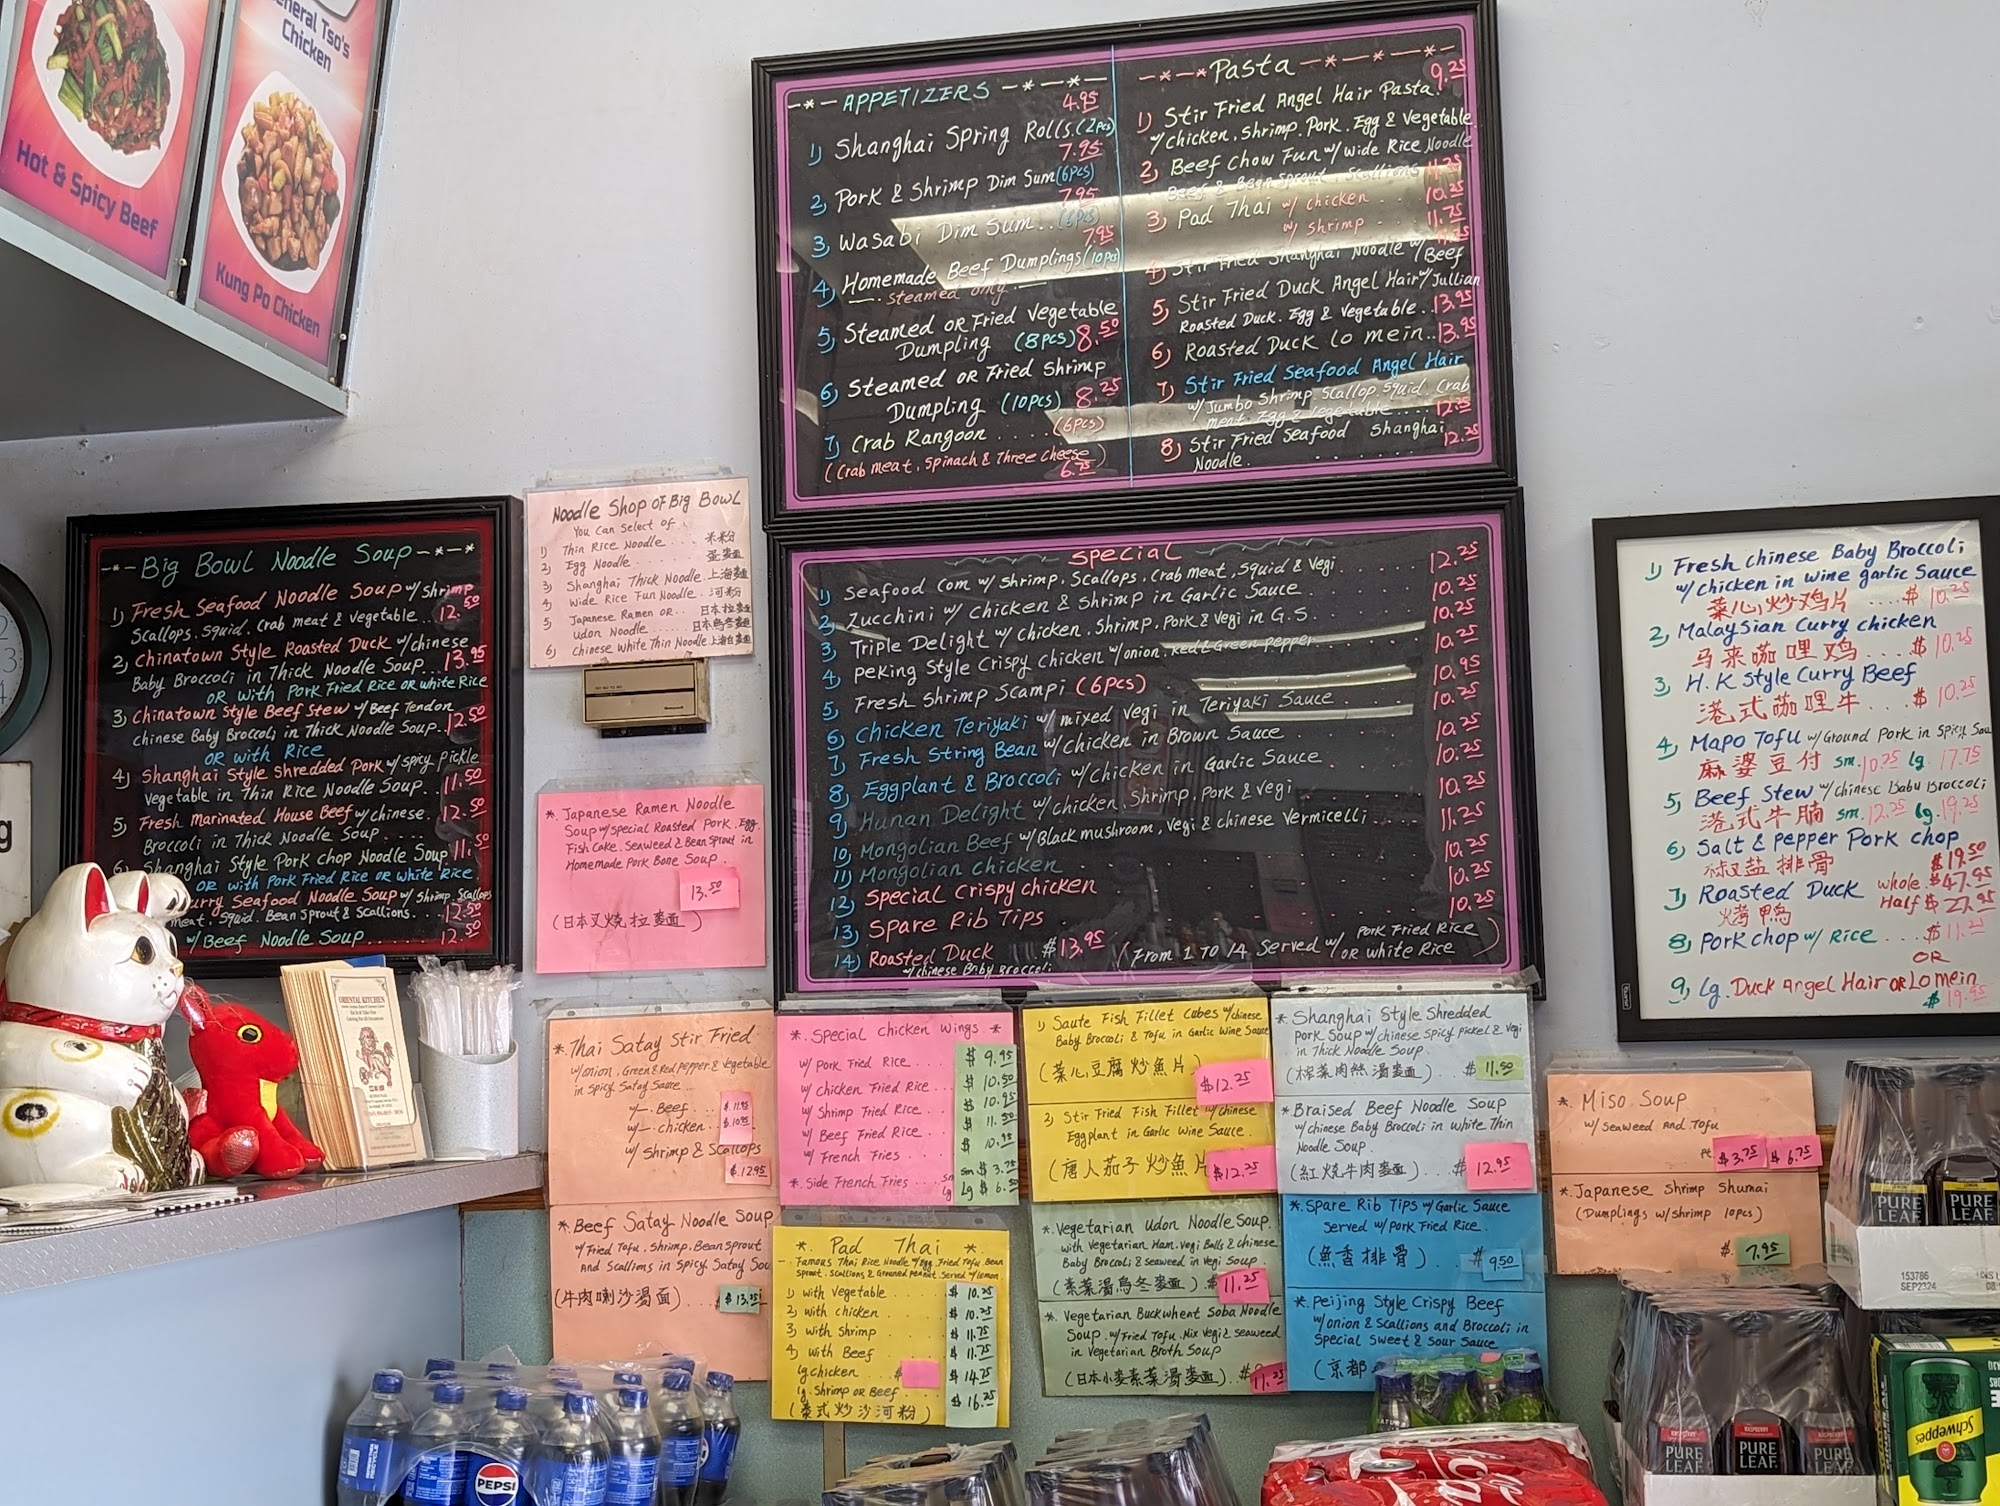 General Tso's
Chicken
Hot & Spicy Beef
Kung Po Chicken
-*- APPETIZERS -*-*-
4.95
1) Shanghai Spring Rolls (2pcs)
7.95
2) Pork & Shrimp Dim Sum (6pcs)
7.95
3) Wasabi Dim Sum.. (6pcs)
7.95
4) Homemade Beef Dumplings (10pcs)
steamed only
5) Steamed OR Fried Vegetable
Dumpling (8pcs) 8.50
6) Steamed OR Fried Shrimp
Dumpling (10pcs) 8.25
7) Crab Rangoon .... (6pcs)
(Crab meat, Spinach & Three cheese)
6.75
-*-* Pasta -*-*-
9.25
1) Stir Fried Angel Hair Pasta
w/chicken, Shrimp, Pork, Egg & Vegetable
2) Beef Chow Fun w/ Wide Rice Noodle
Beef & Bean Sprout Scallions 11.25
3) Pad Thai w/ chicken .. 10.25
w/ shrimp ... 11.75
4) Stir Fried Shanghai Noodle w/ Beef
5) Stir Fried Duck Angel Hair w/ Jullian
Roasted Duck. Egg & Vegetable .. 13.95
6) Roasted Duck Lo mein.. 13.95
7) Stir Fried Seafood Angel Hair
w/ Jumbo Shrimp. Scallop. Squid. Crab
meat. Egg & Vegetable ..... 12.25
8) Stir Fried Seafood Shanghai
Noodle. 12.25
-*- Big Bowl Noodle Soup -*-*
1) Fresh Seafood Noodle Soup w/ Shrimp
Scallops. Squid. Crab meat & Vegetable .. 12.50
2) Chinatown Style Roasted Duck w/chinese
Baby Broccoli in Thick Noodle Soup... 13.95
OR with Pork Fried Rice OR White Rice
3) Chinatown Style Beef Stew w/ Beef Tendon
chinese Baby Broccoli in Thick Noodle Soup.. 12.50
OR with Rice
4) Shanghai Style Shredded Pork w/ spicy Pickle
Vegetable in Thin Rice Noodle Soup... 11.50
5) Fresh Marinated House Beef w/chinese.
Broccoli in Thick Noodle Soup .... 12.50
6) Shanghai Style Pork Chop Noodle Soup 11.50
OR with Pork Fried Rice OR White Rice
urry Seafood Noodle Soup w/ Shrimp Scallops
meat. Squid. Bean Sprout & Scallions.... 12.50
w/ Beef Noodle Soup....... 12.50
Noodle Shop of Big Bowl
You Can Select of.
1) Thin Rice Noodle .... 米粉
2) Egg Noodle ..... 蛋麵
3) Shanghai Thick Noodle. 上海麵
4) Wide Rice Fun Noodle. 河粉
5) Japanese Ramen OR.. 日本拉麵
Udon Noodle ..... 日本烏冬麵
6) Chinese White Thin Noodle 上海白麵
Honeywell
* Japanese Ramen Noodle
Soup w/special Roasted Pork. Egg.
Fish Cake. Seaweed & Bean Sprout in
Homemade Pork Bone Soup.
13.50
(日本叉燒拉麵)
Special
1) Seafood Com w/ Shrimp. Scallops. Crab meat, Squid & Vegi ..... 12.25
2) Zucchini w/ Chicken & Shrimp in Garlic Sauce ..... 10.25
3) Triple Delight w/ chicken, Shrimp, Pork & Vegi in G.S. .... 10.25
4) Peking Style Crispy Chicken w/onion, Red & Green pepper ..... 10.25
5) Fresh Shrimp Scampi (6pcs) 10.95
6) Chicken Teriyaki w/ mixed Vegi in Teriyaki Sauce .. 10.25
7) Fresh String Bean w/ Chicken in Brown Sauce ... 10.25
8) Eggplant & Broccoli w/ Chicken in Garlic Sauce ... 10.25
9) Hunan Delight w/ chicken, Shrimp, Pork & Vegi ... 10.25
10) Mongolian Beef w/ Black mushroom, Vegi & Chinese Vermicelli .. 11.25
11) Mongolian Chicken 10.25
12) Special Crispy Chicken 10.25
13) Spare Rib Tips 10.25
14) Roasted Duck $13.95 (From 1 TO 14 Served w/ Pork Fried Rice OR White Rice)
w/ chinese Baby Broccoli
1) Fresh Chinese Baby Broccoli
w/ chicken in Wine garlic Sauce
菜心炒鸡片 .... $ 10.25
2) Malaysian Curry Chicken
马来咖哩鸡 ... $ 10.25
3) H.K Style Curry Beef
港式咖哩牛 ... $ 10.25
4) Mapo Tofu w/ Ground Pork in Spicy Sau
麻婆豆付 sm. 10.25 lg. 17.75
5) Beef Stew w/ chinese Baby Broccoli
港式牛腩 sm 12.25 lg. 19.25
6) Salt & Pepper Pork chop
椒盐排骨 $ 19.50
7) Roasted Duck Whole $47.95
烤鸭 Half $27.95
8) Pork Chop w/ Rice ... $ 11.25
OR
9) Lg. Duck Angel Hair OR Lo mein
$ 19.95
ORIENTAL KITCHEN
* Thai Satay Stir Fried
w/onion, Green & Red Pepper & Vegetable
in Spicy Satay Sauce
w/-- Beef $ 11.95
w/-- chicken .. $ 10.95
w/ Shrimp & Scallops
$. 12.95
*. Beef Satay Noodle Soup
w/ Fried Tofu, Shrimp. Bean sprout
And Scallions in Spicy Satay Sou
(牛肉喇沙湯面) .. $ 13.25
*. Special Chicken Wings *
w/ Pork Fried Rice. $ 9.95
w/ chicken Fried Rice.. $ 10.50
w/ Shrimp Fried Rice .. $ 10.95
w/ Beef Fried Rice ... $ 11.50
w/ French Fries ... $ 10.95
* Side French Fries. sm $ 3.75
Lg $ 6.50
*. Pad Thai *.
Famous Thai Rice Noodle w/ Egg. Fried Tofu. Bean
Sprout. Scallions & Ground Peanut. Served w/ Lemon
1) with Vegetable $ 10.25
2) with chicken $ 10.25
3) with Shrimp $ 11.75
4) with Beef $ 11.75
lg chicken $ $ 14.25
lg. Shrimp OR Beef. $ 16.25
(泰式炒沙河粉)
1) Saute Fish Fillet Cubes w/chinese
Baby Broccoli & Tofu in Garlic Wine Sauce
(菜心豆腐炒魚片) $ 12.25
2) Stir Fried Fish Fillet w/ chinese
Eggplant in Garlic Wine Sauce.
(唐人茄子炒魚片 $ 12.25
*. Vegetarian Udon Noodle Soup.
with Vegetarian Ham. Vegi Balls & Chinese
Baby Broccoli & Seaweed in Vegi Soup
(素菜湯烏冬麵) $ 11.25
*. Vegetarian Buckwheat Soba Noodle
Soup. w/ Fried Tofu. Mix Vegi & Seaweed
in Vegetarian Broth Soup
(日本小麥素菜湯麵). $ 11.25
* Shanghai Style Shredded
Pork Soup w/ chinese spicy pickel & Vegi
in Thick Noodle Soup.
(榨菜肉絲湯麵). $ 11.50
* Braised Beef Noodle Soup
w/ chinese Baby Broccoli in White Thin
Noodle Soup.
(紅燒牛肉麵) .. $ 12.95
*. Spare Rib Tips w/ Garlic Sauce
Served w/ Pork Fried Rice.
(魚香排骨) .. $ 9.50
*. Peijing Style Crispy Beef
w/onion & Scallions and Broccoli in
Special Sweet & Sour Sauce
(京都
*. Miso Soup
w/ Seaweed And Tofu
Pt $ 3.75 $ 6.75
*. Japanese Shrimp Shumai
(Dumplings w/ Shrimp 10pcs)
$. 7.95
PURE
LEAF
PURE
LEAF
153786
SEP2324
PEPSI
PURE
LEAF
RASPBERRY
PURE
LEAF
PURE
LEAF
Schweppes